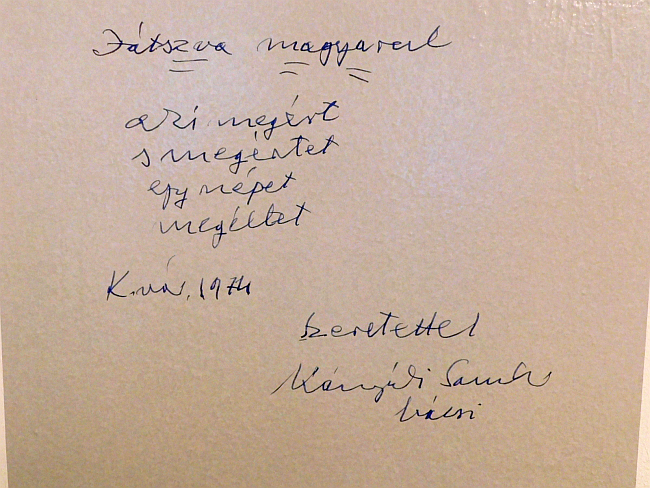 Játszva magyarul
aki megért
s megértet
egy népet
megéltet
K.vár, 1974
Szeretettel
Kányádi Sándor
bácsi